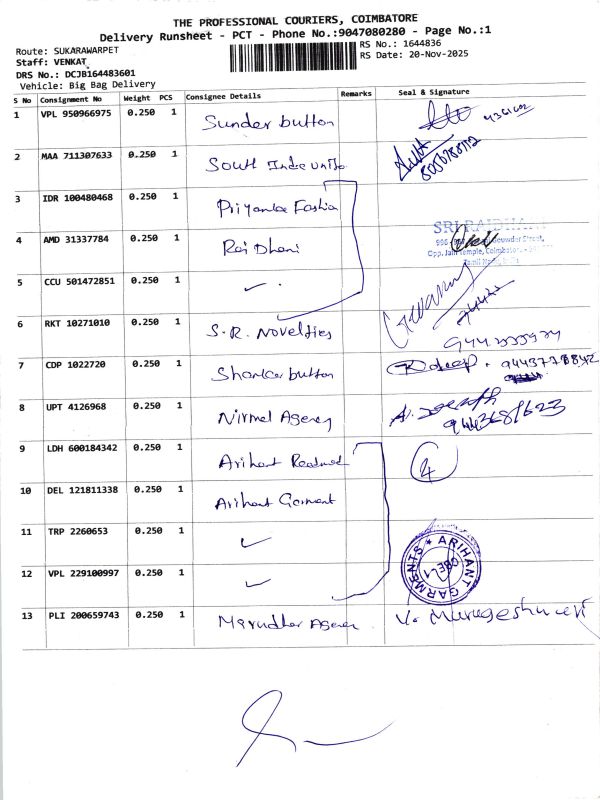 THE PROFESSIONAL COURIERS, COIMBATORE
Delivery Runsheet - PCT - Phone No.:9047080280 - Page No.:1
Route: SUKARAWARPET
RS No.: 1644836
Staff: VENKAT
RS Date: 20-Nov-2025
DRS No.: DCJB164483601
Vehicle: Big Bag Delivery
S No Consignment No Weight PCS Consignee Details Remarks Seal & Signature
1 VPL 950966975 0.250 1 Sunder button
2 MAA 711307633 0.250 1 South
3 IDR 100480468 0.250 1 Priyanka Fashion
4 AMD 31337784 0.250 1 Raj Dhani
SRI RAJDHANI
Opp. Jain Temple, Coimbatore
Tamil Nadu, India
5 CCU 501472851 0.250 1 ✓
6 RKT 10271010 0.250 1 S.R. Novelties
7 CDP 1022720 0.250 1 Shankar button
8 UPT 4126968 0.250 1 Nirmal Agency
9 LDH 600184342 0.250 1 Arihant Readmed 4
10 DEL 121811338 0.250 1 Arihant Garment
11 TRP 2260653 0.250 1 ✓
ARIHANT GARMENTS
CBE-1
12 VPL 229100997 0.250 1 ✓
13 PLI 200659743 0.250 1 Marudhar Agency V. Murugeshwari